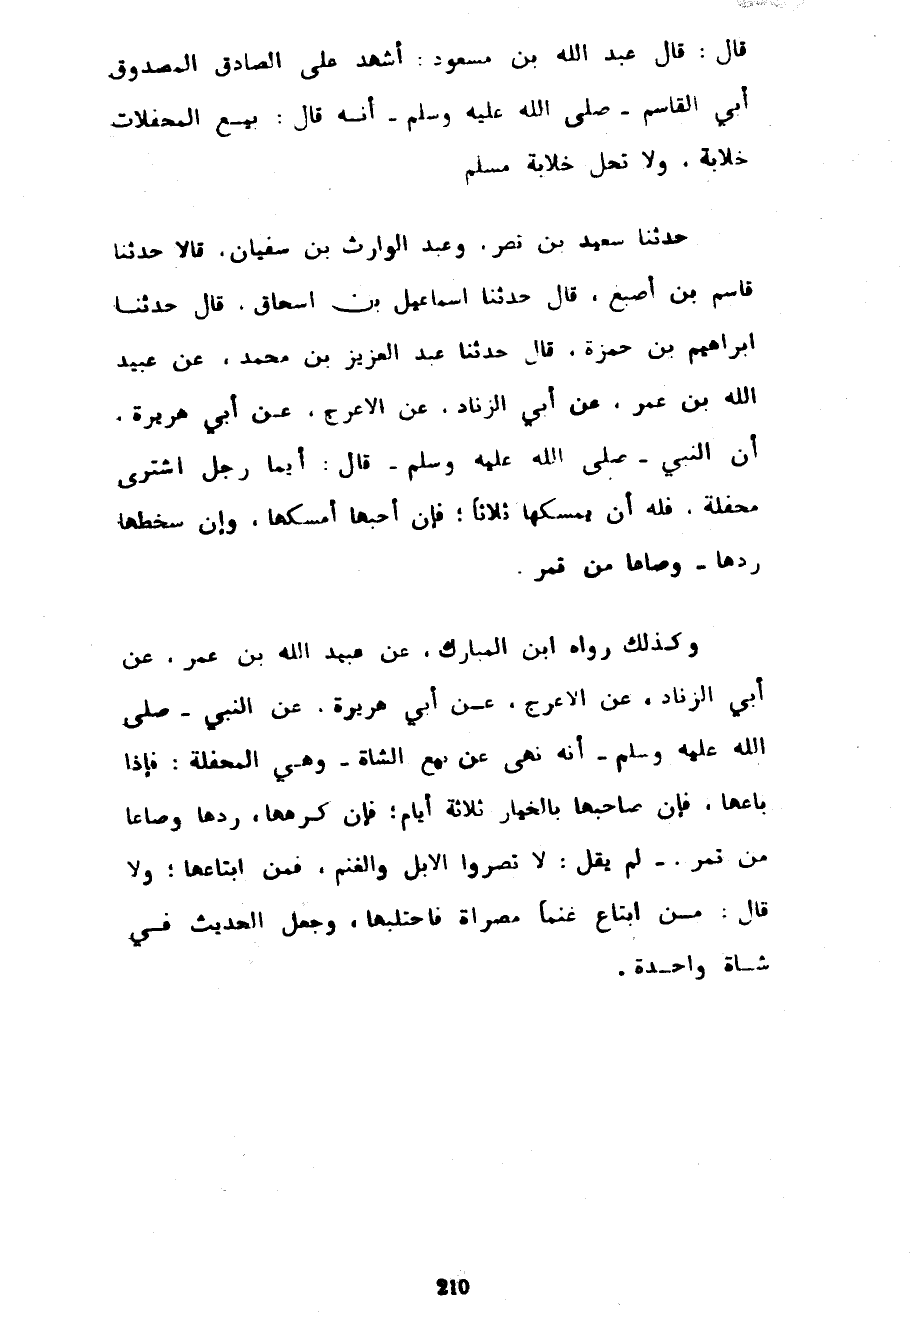 قال : قال عبد الله بن مسعود : أشهد على الصادق المصدوق
أبي القاسم ـ صلى الله عليه وسلم ـ أنـه قال : بيـع المحفلات
خلابة ، ولا تحل خلابة مسلم
حدثنا سعيد بن نصر ، وعبد الوارث بن سفيان ، قالا حدثنا
قاسم بن أصبغ ، قال حدثنا اسماعيل بن اسحاق ، قال حدثنـا
ابراهيم بن حمزة ، قال حدثنا عبد العزيز بن محمد ، عن عبيد
الله بن عمر ، عن أبي الزناد ، عن الاعرج ، عـن أبي هريرة ،
أن النبي ـ صلى الله عليه وسلم ـ قال : أيما رجل اشترى
محفلة ، فله أن يمسكها ثلاثاً ؛ فإن أحبها أمسكها ، وإن سخطها
ردها ـ وصاعا من تمر .
وكـذلك رواه ابن المبارك ، عن عبيد الله بن عمر ، عن
أبي الزناد ، عن الاعرج ، عـن أبي هريرة ، عن النبي ـ صلى
الله عليه وسلم ـ أنه نهى عن بيع الشاة ـ وهـي المحفلة : فإذا
باعها ، فإن صاحبها بالخيار ثلاثة أيام ؛ فإن كـرهها ، ردها وصاعا
من تمر . ـ لم يقل : لا تصروا الابل والغنم ، فمن ابتاعها ؛ ولا
قال : مـن ابتاع غنماً مصراة فاحتلبها ، وجعل الحديث فـي
شـاة واحـدة .
210